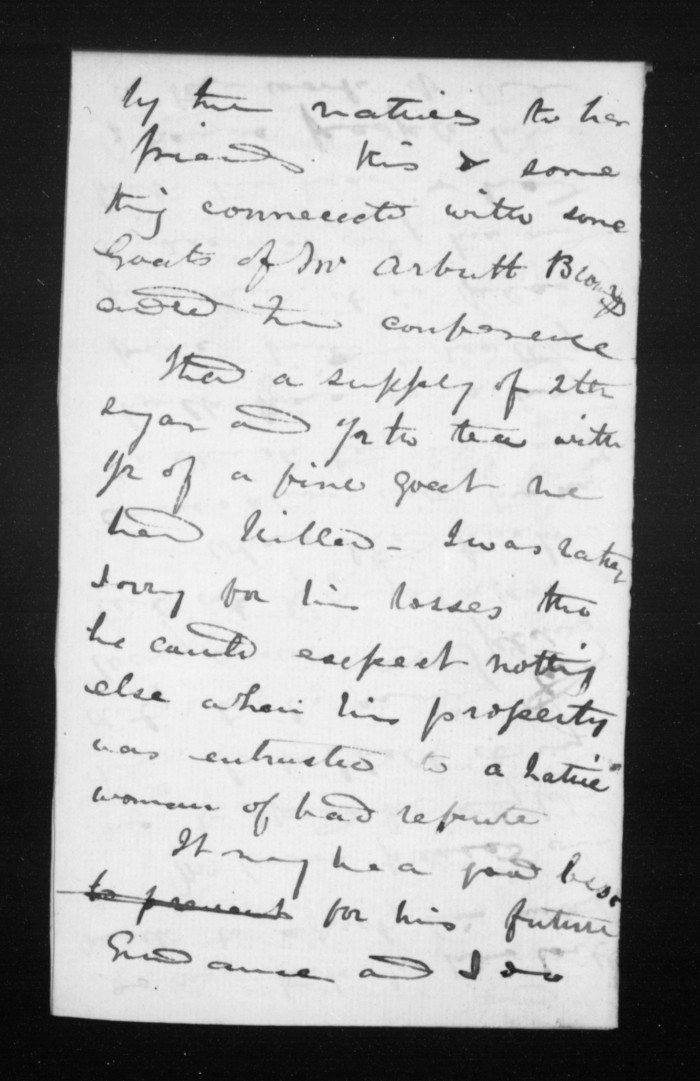 by the natives to her
friends this & some
thing connected with some
Goats of Mr Arbutt Brown
ended the conference
I had a supply of 2 lbs
sugar and ½ lb tea with
½ of a fine goat he
had killed - I was rather
sorry for his losses tho
he could expect nothing
else when his property
was entrusted to a native
woman of bad repute
It may be a good lesson
to prevent for his future
Guidance and I do